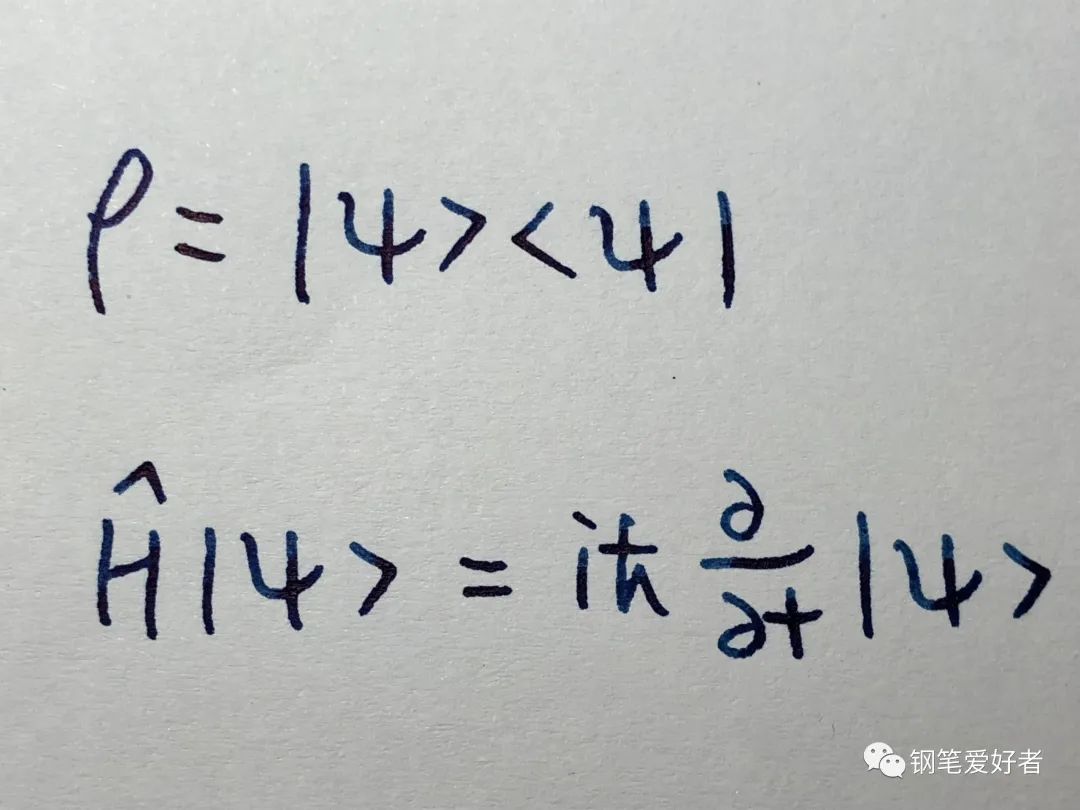 ρ = |ψ><ψ|
Ĥ|ψ> = iħ ∂/∂t |ψ>
钢笔爱好者